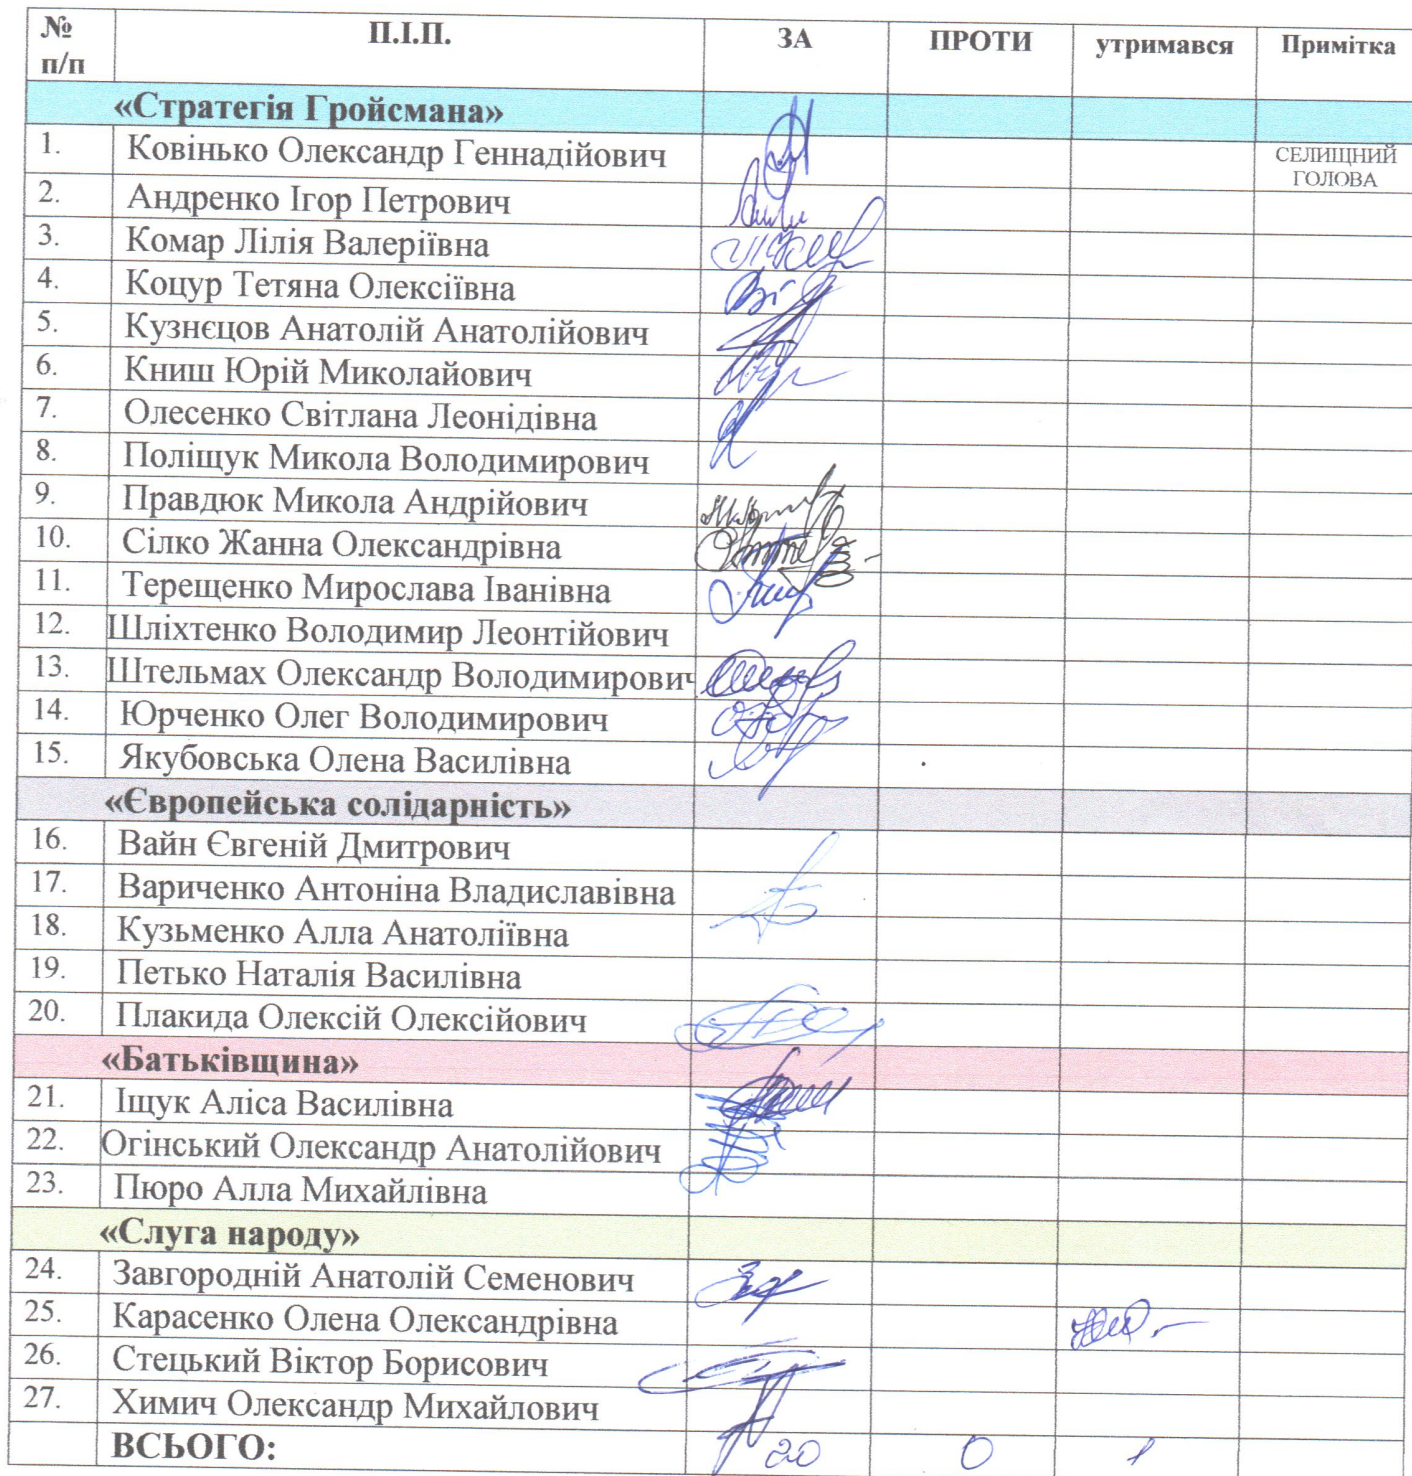 № п/п П.І.П. ЗА ПРОТИ утримався Примітка
«Стратегія Гройсмана»
1. Ковінько Олександр Геннадійович СЕЛИЩНИЙ ГОЛОВА
2. Андренко Ігор Петрович
3. Комар Лілія Валеріївна
4. Коцур Тетяна Олексіївна
5. Кузнєцов Анатолій Анатолійович
6. Книш Юрій Миколайович
7. Олесенко Світлана Леонідівна
8. Поліщук Микола Володимирович
9. Правдюк Микола Андрійович
10. Сілко Жанна Олександрівна
11. Терещенко Мирослава Іванівна
12. Шліхтенко Володимир Леонтійович
13. Штельмах Олександр Володимирович
14. Юрченко Олег Володимирович
15. Якубовська Олена Василівна
«Європейська солідарність»
16. Вайн Євгеній Дмитрович
17. Вариченко Антоніна Владиславівна
18. Кузьменко Алла Анатоліївна
19. Петько Наталія Василівна
20. Плакида Олексій Олексійович
«Батьківщина»
21. Іщук Аліса Василівна
22. Огінський Олександр Анатолійович
23. Пюро Алла Михайлівна
«Слуга народу»
24. Завгородній Анатолій Семенович
25. Карасенко Олена Олександрівна
26. Стецький Віктор Борисович
27. Химич Олександр Михайлович
ВСЬОГО: 20 0 1